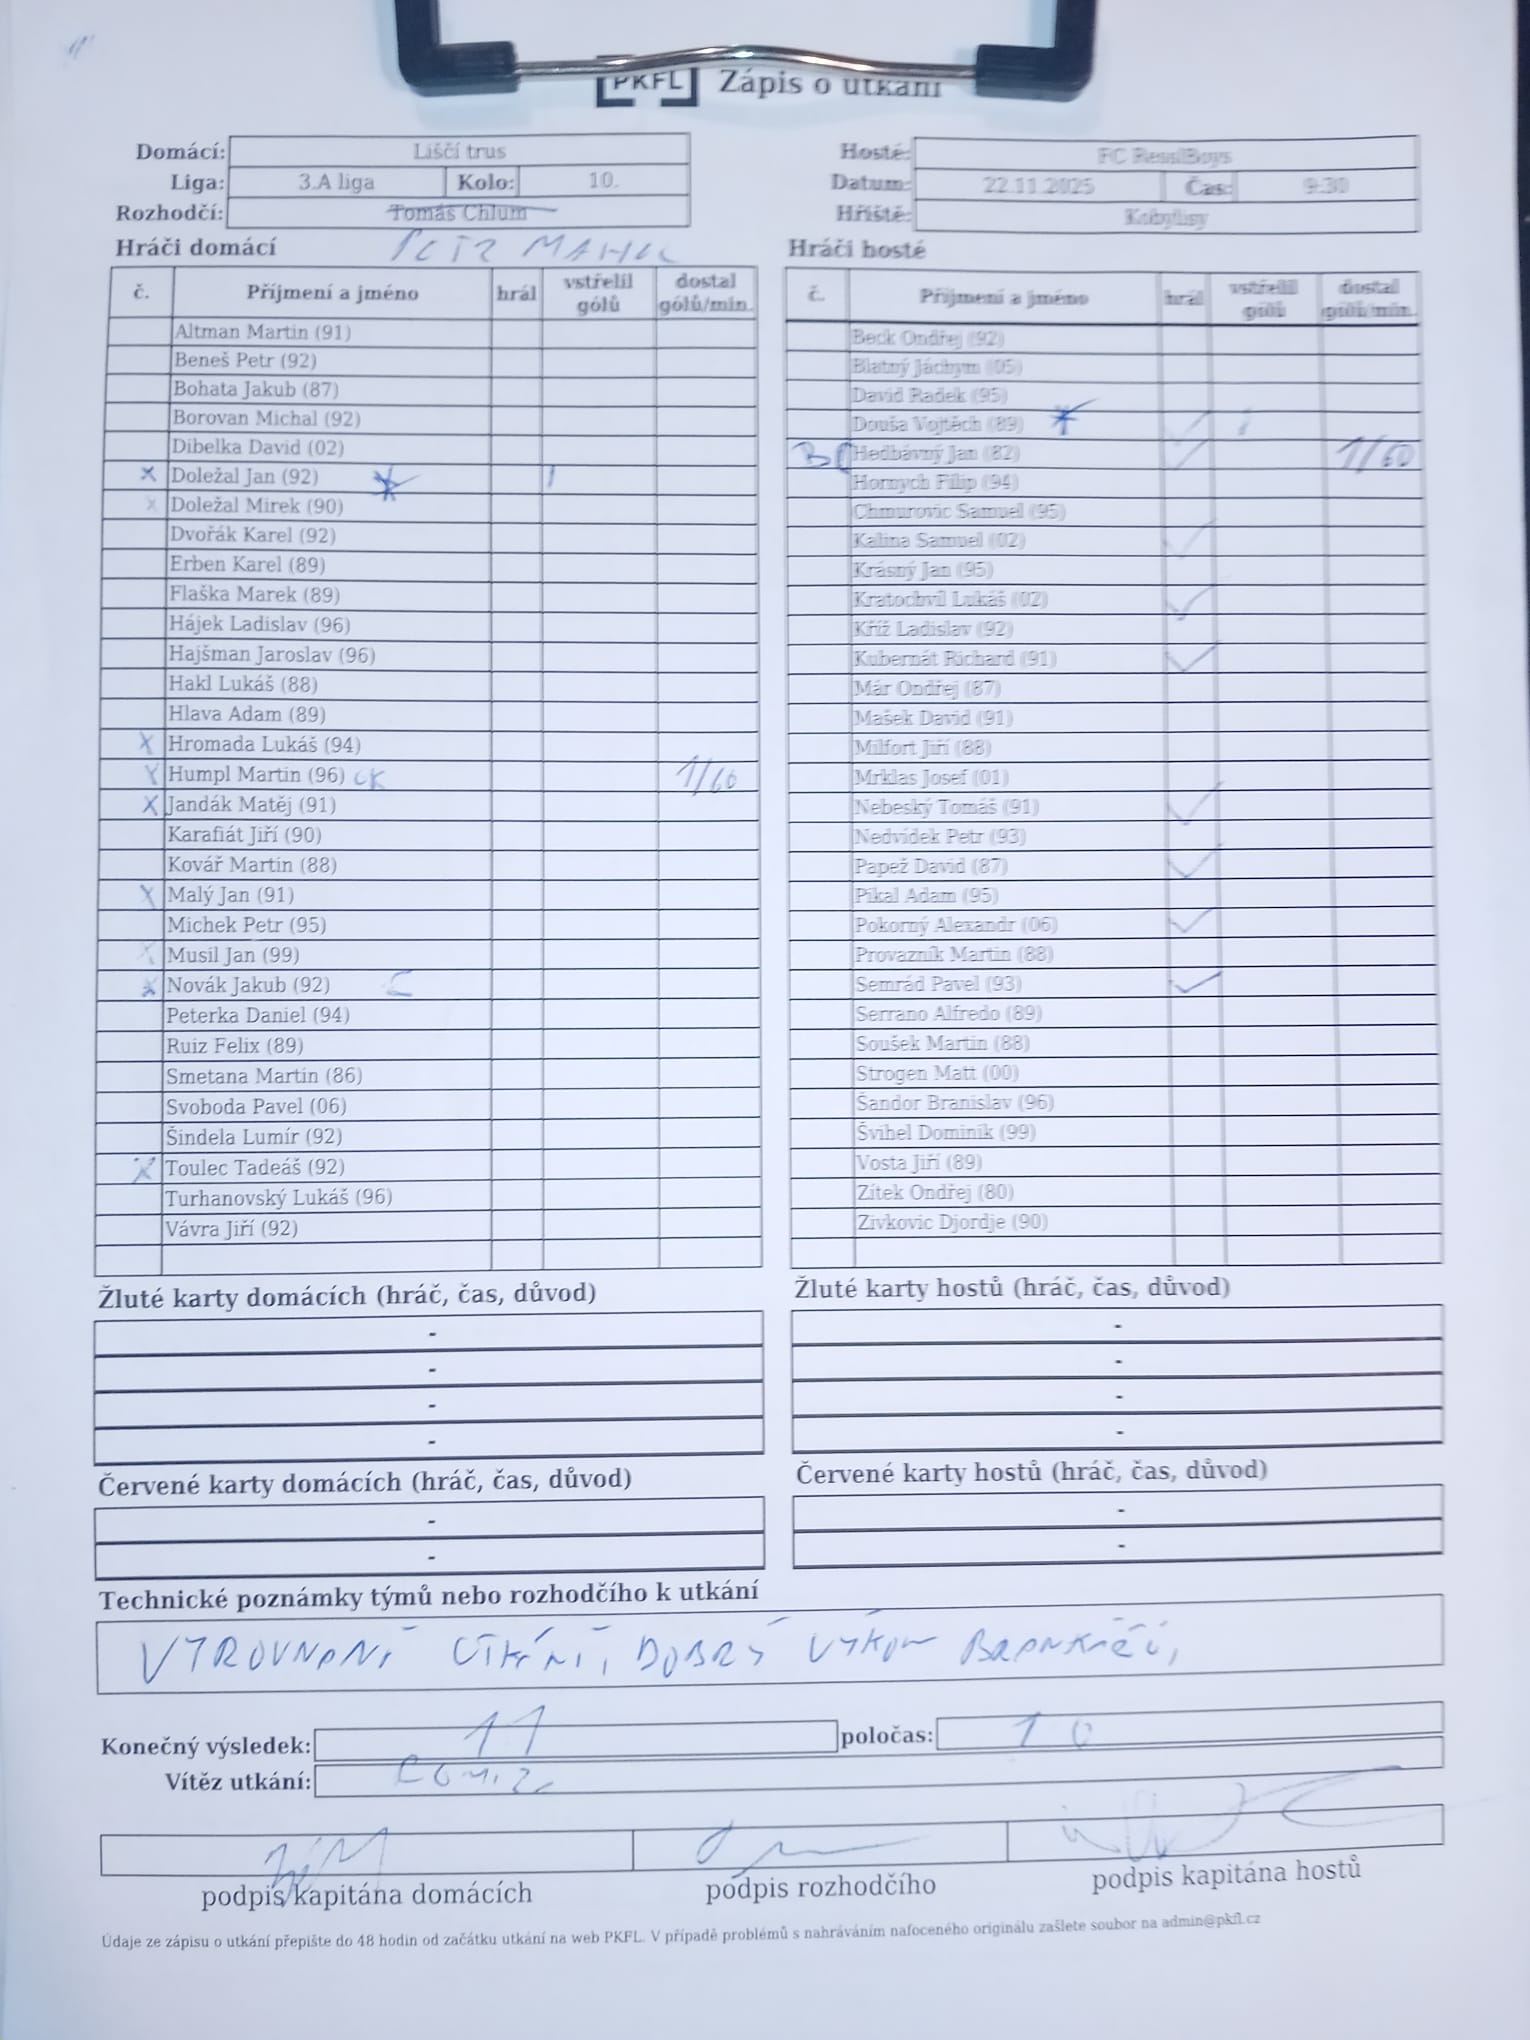 PKFL Zápis o utkání
Domácí: Liščí trus
Liga: 3.A liga Kolo: 10.
Rozhodčí: Tomáš Chlum
Hosté: FC ResslBoys
Datum: 22.11.2025 Čas: 9:30
Hřiště: Kobylisy
Hráči domácí
č. Příjmení a jméno hrál vstřelil gólů dostal gólů/min.
Altman Martin (91)
Beneš Petr (92)
Bohata Jakub (87)
Borovan Michal (92)
Dibelka David (02)
X Doležal Jan (92) 1
X Doležal Mirek (90)
Dvořák Karel (92)
Erben Karel (89)
Flaška Marek (89)
Hájek Ladislav (96)
Hajšman Jaroslav (96)
Hakl Lukáš (88)
Hlava Adam (89)
X Hromada Lukáš (94)
X Humpl Martin (96) 1/60
X Jandák Matěj (91)
Karafiát Jiří (90)
Kovář Martin (88)
X Malý Jan (91)
Michek Petr (95)
X Musil Jan (99)
X Novák Jakub (92) C
Peterka Daniel (94)
Ruiz Felix (89)
Smetana Martin (86)
Svoboda Pavel (06)
Šindela Lumír (92)
X Toulec Tadeáš (92)
Turhanovský Lukáš (96)
Vávra Jiří (92)
Hráči hosté
č. Příjmení a jméno hrál vstřelil gólů dostal gólů/min.
Beck Ondřej (92)
Blatný Jáchym (05)
David Radek (95)
Douša Vojtěch (89) ✓ 1
Hedbávný Jan (82) ✓ 1/60
Hornych Filip (94)
Chmurovic Samuel (95)
Kalina Samuel (02) ✓
Krásný Jan (95)
Kratochvíl Lukáš (02) ✓
Kříž Ladislav (92)
Kubernát Richard (91) ✓
Már Ondřej (87)
Mašek David (91)
Milfort Jiří (88)
Mrklas Josef (01)
Nebeský Tomáš (91) ✓
Nedvídek Petr (93)
Papež David (87) ✓
Pikal Adam (95)
Pokorný Alexandr (06) ✓
Provazník Martin (88)
Semrád Pavel (93) ✓
Serrano Alfredo (89)
Soušek Martin (88)
Strogen Matt (00)
Šandor Branislav (96)
Švihel Dominik (99)
Vosta Jiří (89)
Zítek Ondřej (80)
Zivkovic Djordje (90)
Žluté karty domácích (hráč, čas, důvod)
-
-
-
-
Žluté karty hostů (hráč, čas, důvod)
-
-
-
-
Červené karty domácích (hráč, čas, důvod)
-
-
Červené karty hostů (hráč, čas, důvod)
-
-
Technické poznámky týmů nebo rozhodčího k utkání
VYROVNANÉ UTKÁNÍ, DOBRÝ VÝKON BRANKÁŘŮ,
Konečný výsledek: 1 1 poločas: 1 0
Vítěz utkání: REMIZA
podpis kapitána domácích podpis rozhodčího podpis kapitána hostů
Údaje ze zápisu o utkání přepište do 48 hodin od začátku utkání na web PKFL. V případě problémů s nahráváním nafoceného originálu zašlete soubor na admin@pkfl.cz